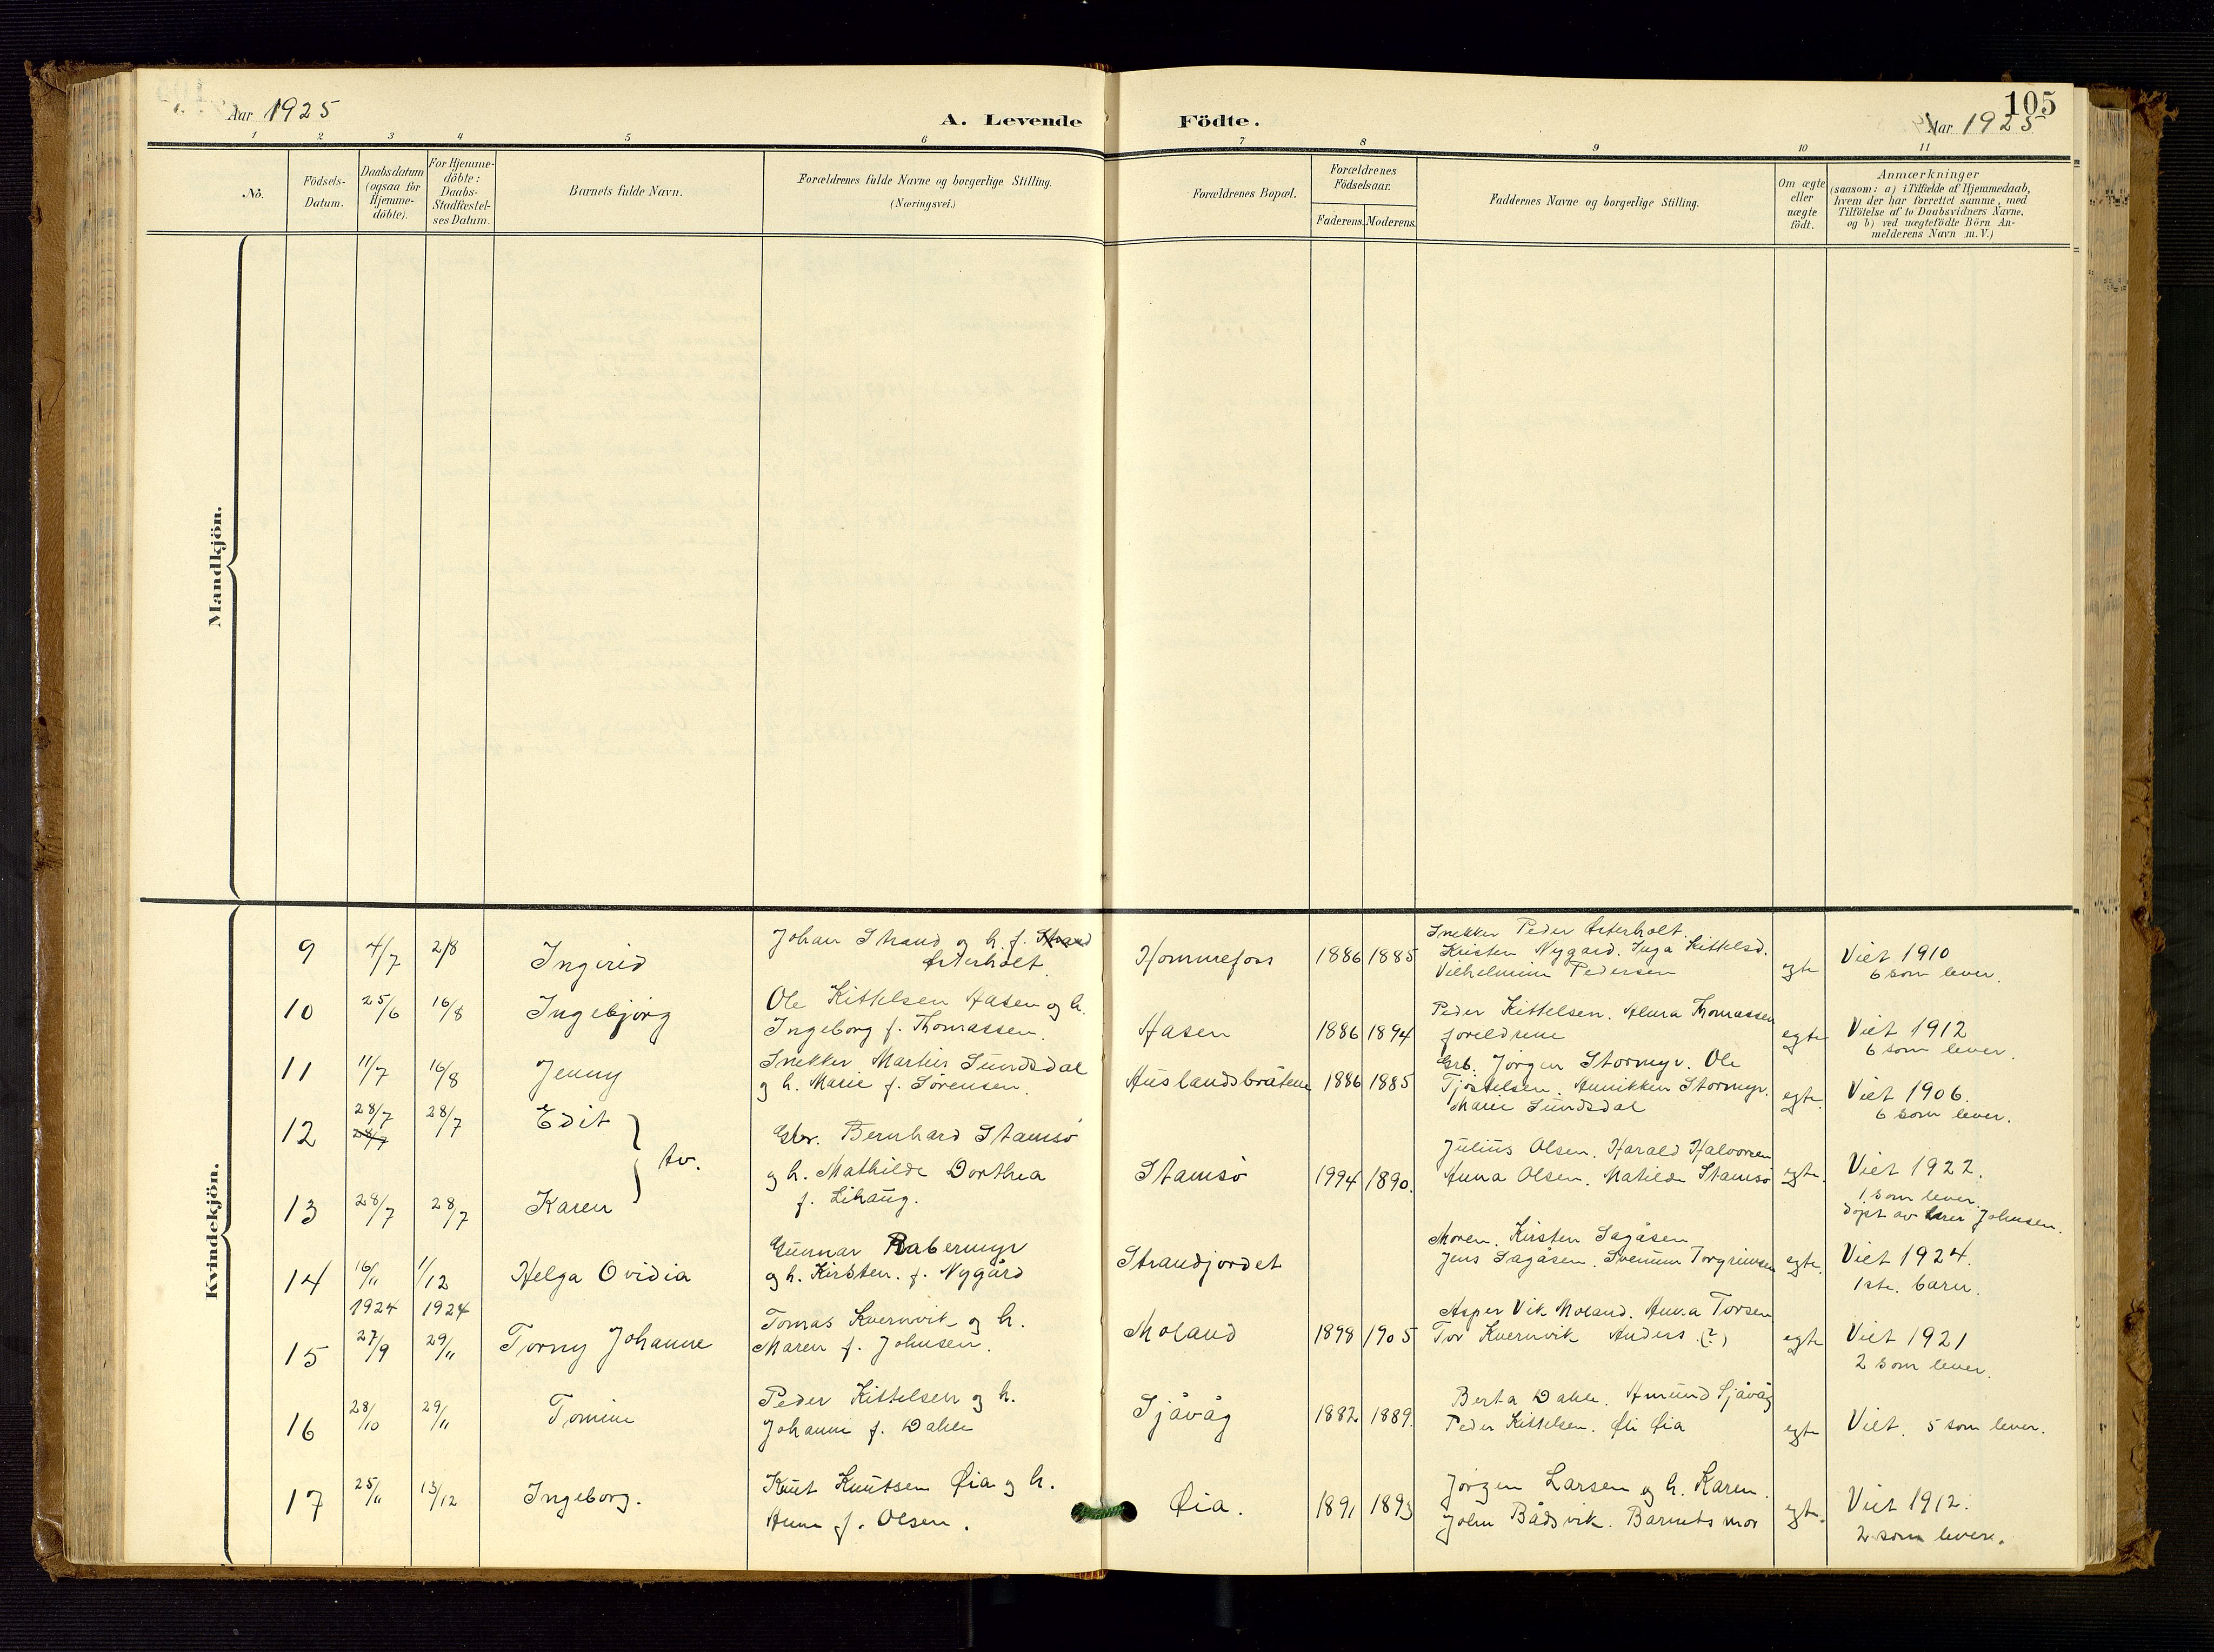 105
Aar 1925
A. Levende Födte.
Aar 1925
1 2 3 4 5 6 7 8 9 10 11
No.
Födsels-
Datum.
Daabsdatum
(ogsaa for
Hjemme-
döbte).
For Hjemme-
döbte:
Daabs-
Stadfæstel-
ses Datum.
Barnets fulde Navn.
Forældrenes fulde Navne og borgerlige Stilling.
(Næringsvei.)
Forældrenes Bopæl.
Forældrenes
Födselsaar.
Faderens. Moderens.
Faddernes Navne og borgerlige Stilling.
Om ægte
eller
uægte
födt.
Anmærkninger
(saasom: a) i Tilfælde af Hjemmedaab,
hvem der har forrettet samme, med
Tilföielse af to Daabsvidners Navne,
og b) ved uægtefödte Börn An-
melderens Navn m. V.)
Mandkjön.
Kvindekjön.
9 4/7 2/8 Ingirid
Johan Strand og h. f. Strand
Østerholt.
Hommefoss 1886 1885
Snekker Peder Østerholt.
Kristen Nygard. Inga Kittelsd.
Vilhelmine Pedersen
egte
Viet 1910
6 som lever.
10 25/6 16/8 Ingebjørg
Ole Kittelsen Aasen og h.
Ingeborg f. Thomassen.
Aasen 1886 1894
Peder Kittelsen. Alma Thomassen
foreldrene
egte
Viet 1912
6 som lever.
11 11/7 16/8 Jenny
Snekker Martin Sundsdal
og h. Marie f. Sørensen.
Auslandsbråtene 1886 1885
Grb. Jørgen Stormyr. Ole
Tjøstelsen. Annikken Stormyr.
Marie Sundsdal
egte.
Viet 1906.
6 som lever.
12 28/7 28/7 28/7 Edit
tv.
Gbr. Bernhard Stamsø
og h. Mathilde Dorthea
f. Lihaug.
Stamsø 1994 1890.
Julius Olsen. Harald Halvorsen
Anna Olsen. Matilde Stamsø
egte.
Viet 1922.
1 som lever.
døpt av lærer Johnsen.
13 28/7 28/7 Karen
14 16/11 1/12 Helga Ovidia
Gunnar Rabermyr
og h. Kirsten. f. Nygård
Strandjordet
Moren. Kirsten Sagåsen
Jens Sagåsen. Svenum Torgrimsen
egte.
Viet 1924.
1ste. barn.
1924 1924
15 27/9 29/11 Torny Johanne
Tomas Kvernvik og h.
Maren f. Johnsen.
Moland 1898 1905
Asper Vik Moland. Anna Torsen
Tor Kvernvik Anders (?)
egte
Viet 1921
2 som lever.
16 28/10 29/11 Tomine
Peder Kittelsen og h.
Johanne f. Dahle
Sjåvåg 1882 1889.
Berta Dahle. Amund Sjåvåg
Peder Kittelsen. Øli Øia
egte
Viet. 5 som lever.
17 25/11 13/12 Ingeborg.
Knut Knutsen Øia og h.
Anne f. Olsen.
Øia. 1891 1893
Jørgen Larsen og h. Karen.
John Bådsvik. Barnets mor
egte.
Viet 1912.
2 som lever.